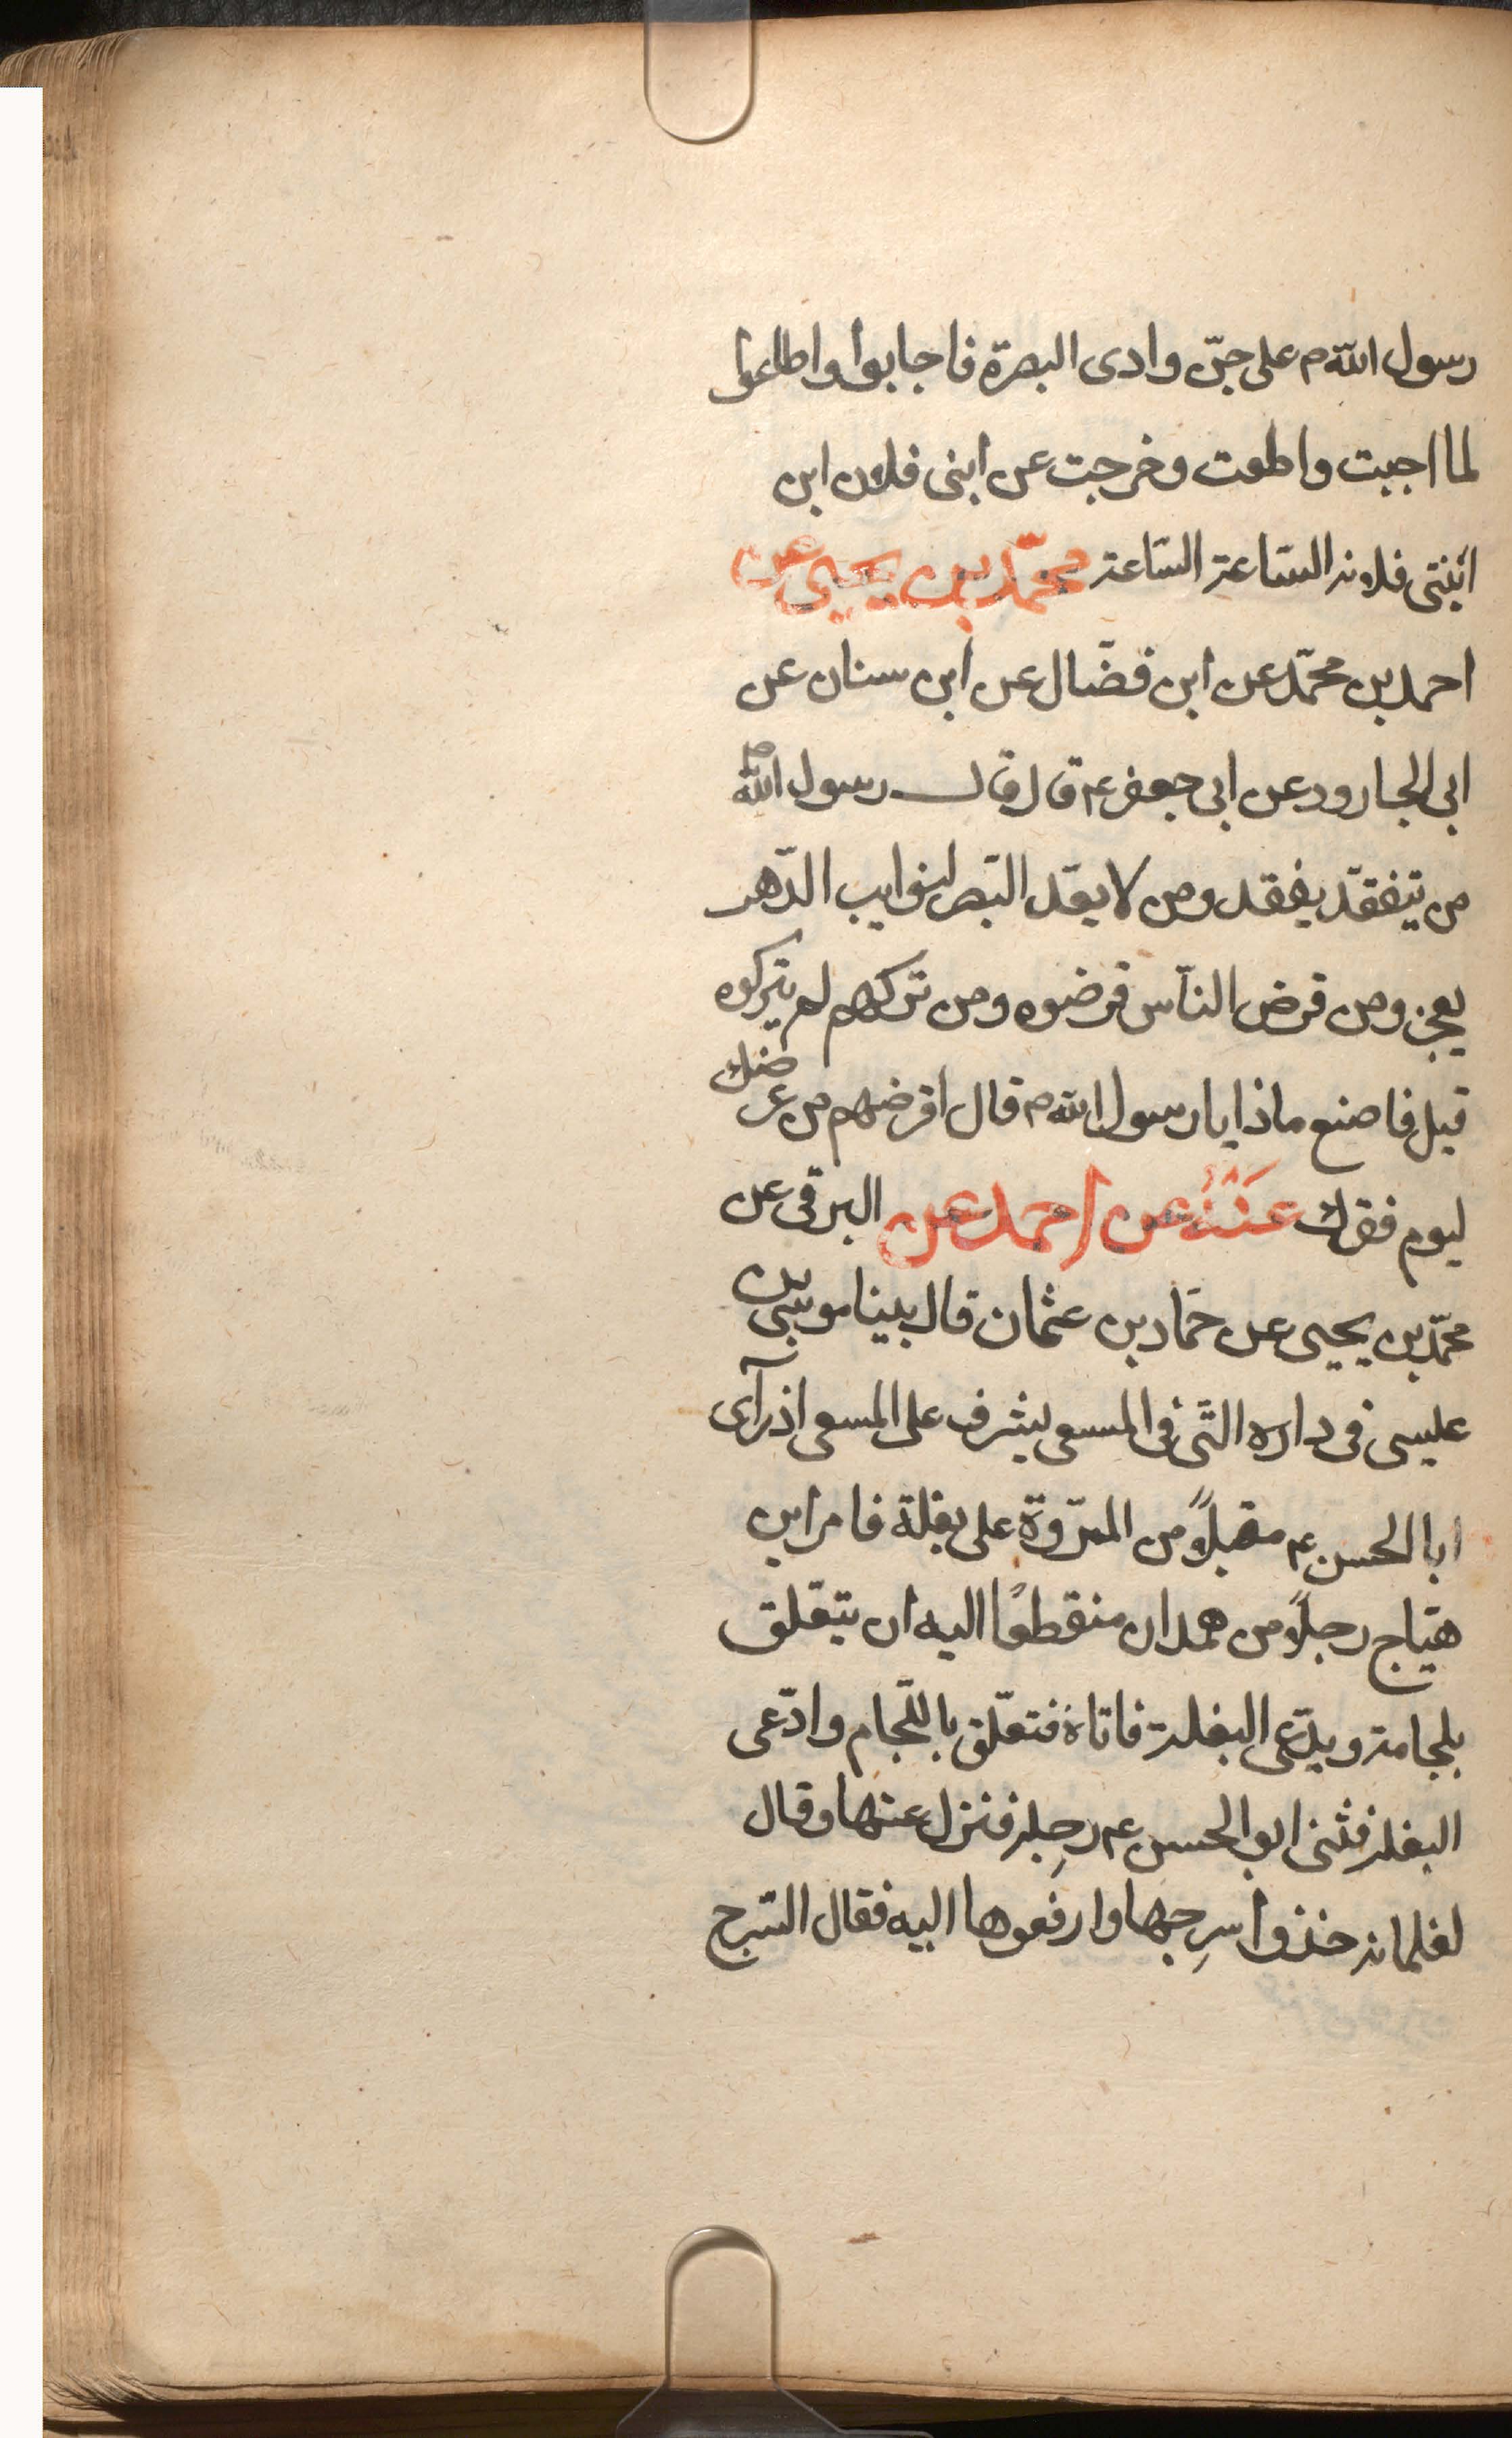 رسول الله م على جنّ وادى البصرة فاجابوا واطاعوا
لما اجبت واطعت وخرجت عن ابنى فلان ابن
ابنتى فلانه السّاعة السّاعة محمّد بن يحيى عن
احمد بن محمّد عن ابن فضّال عن ابن سنان عن
ابى الجارود عن ابى جعفر ع قال قال رسول الله ص
من يتفقّد يفقد ومن لا يعدّ الصبر لنوايب الدّهر
يعجز ومن قرض النّاس قرضوه ومن تركهم لم يتركوه
قيل فاصنع ماذا يا رسول الله م قال اقرضهم من عرضك
ليوم فقرك عَنْهُ عن احمد عن البرقى عن
محمّد بن يحيى عن حمّاد بن عثمان قال بينا موسى بن
عيسى فى داره الّتى فى المسعى يشرف على المسعى اذ رآى
ابا الحسن ع مقبلاً من المروة على بغلة فامر ابن
هيّاج رجلاً من همدان منقطعًا اليه ان يتعلّق
بلجامه ويدّعى البغلة فاتاه فتعلّق باللّجام وادّعى
البغلة فثنى ابو الحسن ع رِجله فنزل عنها وقال
لغلمانه خذوا سرجها وارفعوها اليه فقال السّرج